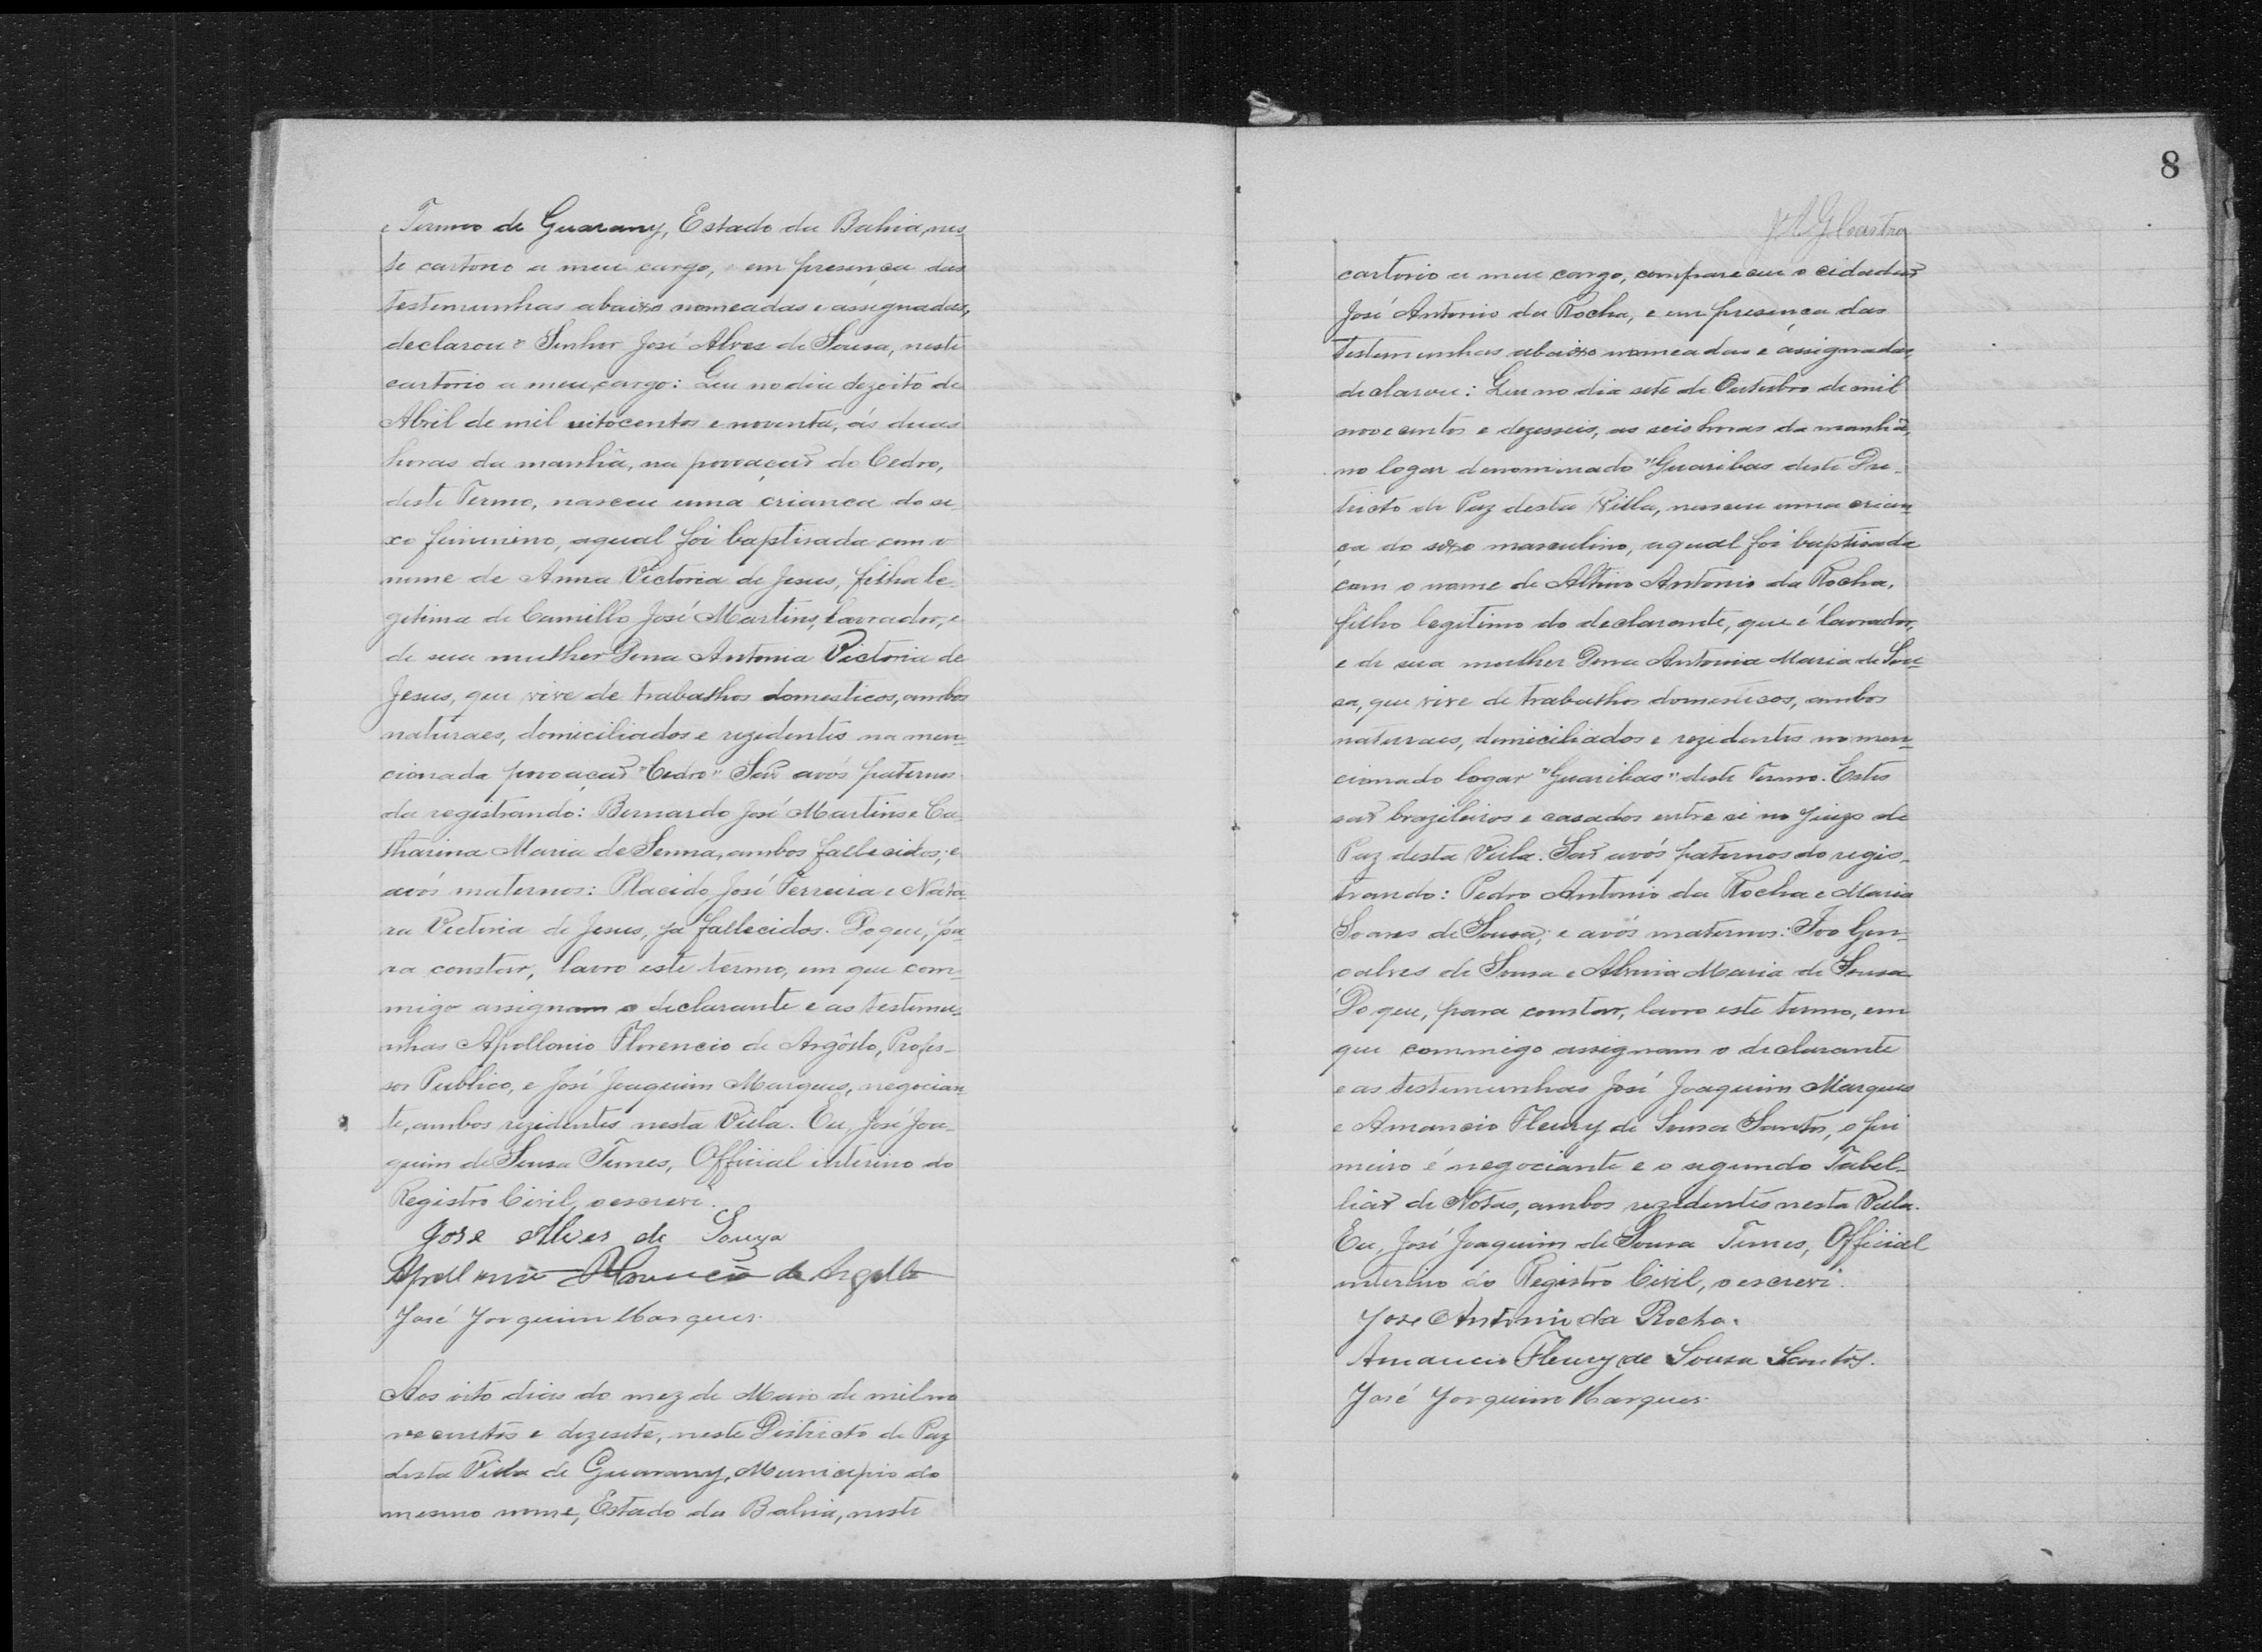 e Termo de Guarany, Estado da Bahia, nes-
te cartorio a meu cargo, em presença das
testemunhas abaixo nomeadas e assignadas,
declarou o Senhor José Alves de Sousa, neste
cartorio a meu cargo: Que no dia dezoito de
Abril de mil oitocentos e noventa, ás duas
horas da manhã, na povoaçaõ do Cedro,
deste Termo, nasceu uma criança do se-
xo feminino, aqual foi baptisada com o
nome de Anna Victoria de Jesus, filha le-
gitima de Camillo José Martins, lavrador, e
de sua mulher Dona Antonia Victoria de
Jesus, que vive de trabalhos domesticos, ambos
naturaes, domiciliados e rezidentes na men-
cionada povoaçaõ "Cedro". Saõ avós paternos
da registrando: Bernardo José Martins e Ca-
tharina Maria de Senna, ambos fallecidos; e
avós maternos: Placido José Ferreira e
Victoria de Jesus, já fallecidos. Do que, pa-
ra constar, lavro este termo, em que com-
migo assignam o declarante e as testemu-
nhas Apollonio Florencio de Argôllo, Profes-
sor Publico, e José Joaquim Marques, negocian-
te, ambos rezidentes nesta Villa. Eu, José Joa-
quim de Sousa Tunes, Official interino do
Registro Civil, o escrevi.
Jose Alves de Souza
Apollonio Florencio de Argollo
José Joaquim Marques.
Aos oito dias do mez de Maio de mil no
vecentos e dezesete, neste Districto de Paz
desta Villa de Guarany, Municipio do
mesmo nome, Estado da Bahia, neste
8
Castro
cartorio a meu cargo, compareceu o cidadaõ
José Antonio da Rocha, e em presença das
testemunhas abaixo nomeadas e assignadas,
declarou: Que no dia sete de Outubro de mil
novecentos e dezesseis, as seis horas da manhã,
no logar denominado "Guaribas deste Dis-
tricto de Paz desta Villa, nasceu uma crian-
ça do sexo masculino, aqual foi baptisada
com o nome de Altino Antonio da Rocha,
filho legitimo do declarante, que é lavrador,
e de sua mulher Dona Antonia Maria de Sou-
sa, que vive de trabalhos domesticos, ambos
naturaes, domiciliados e rezidentes no men-
cionado logar "Guaribas" deste Termo. Estes
saõ brazileiros e casados entre si no Juizo de
Paz desta Villa. Saõ avós paternos do regis-
trando: Pedro Antonio da Rocha e Maria
Soares de Sousa; e avós maternos: Ivo Gon-
çalves de Sousa e Maria de Sousa
Do que, para constar, lavro este termo, em
que commigo assignam o declarante
e as testemunhas José Joaquim Marques
e Amancio Fleury de Sousa Santos, o pri
meiro é negociante e o segundo Tabel-
liaõ de Notas, ambos rezidentes nesta Villa.
Eu, José Joaquim de Sousa Tunes, Official
interino do Registro Civil, o escrevi.
Jose Antonio da Rocha.
Amancio Fleury de Sousa Santos.
José Joaquim Marques.